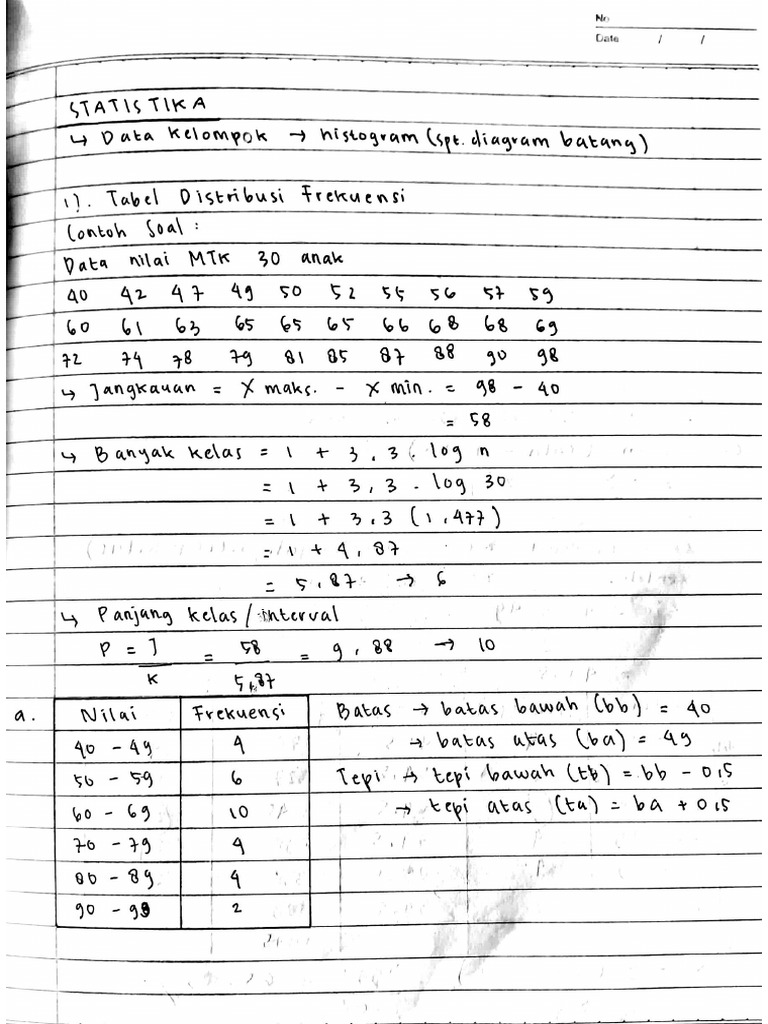 No
Date / /
STATISTIKA
↳ Data Kelompok → histogram (spt. diagram batang)
1). Tabel Distribusi Frekuensi
Contoh Soal :
Data nilai MTK 30 anak
40 42 47 49 50 52 55 56 57 59
60 61 63 65 65 65 66 68 68 69
72 74 78 79 81 85 87 88 90 98
↳ Jangkauan = X maks. - X min. = 98 - 40
= 58
↳ Banyak kelas = 1 + 3,3 . log n
= 1 + 3,3 . log 30
= 1 + 3,3 (1,477)
= 1 + 4,87
= 5,87 → 6
↳ Panjang kelas / interval
P = J/K = 58/5,87 = 9,88 → 10
a. Nilai Frekuensi Batas → batas bawah (bb) = 40
40 - 49 4 → batas atas (ba) = 49
50 - 59 6 Tepi → tepi bawah (tb) = bb - 0,5
60 - 69 10 → tepi atas (ta) = ba + 0,5
70 - 79 4
80 - 89 4
90 - 99 2